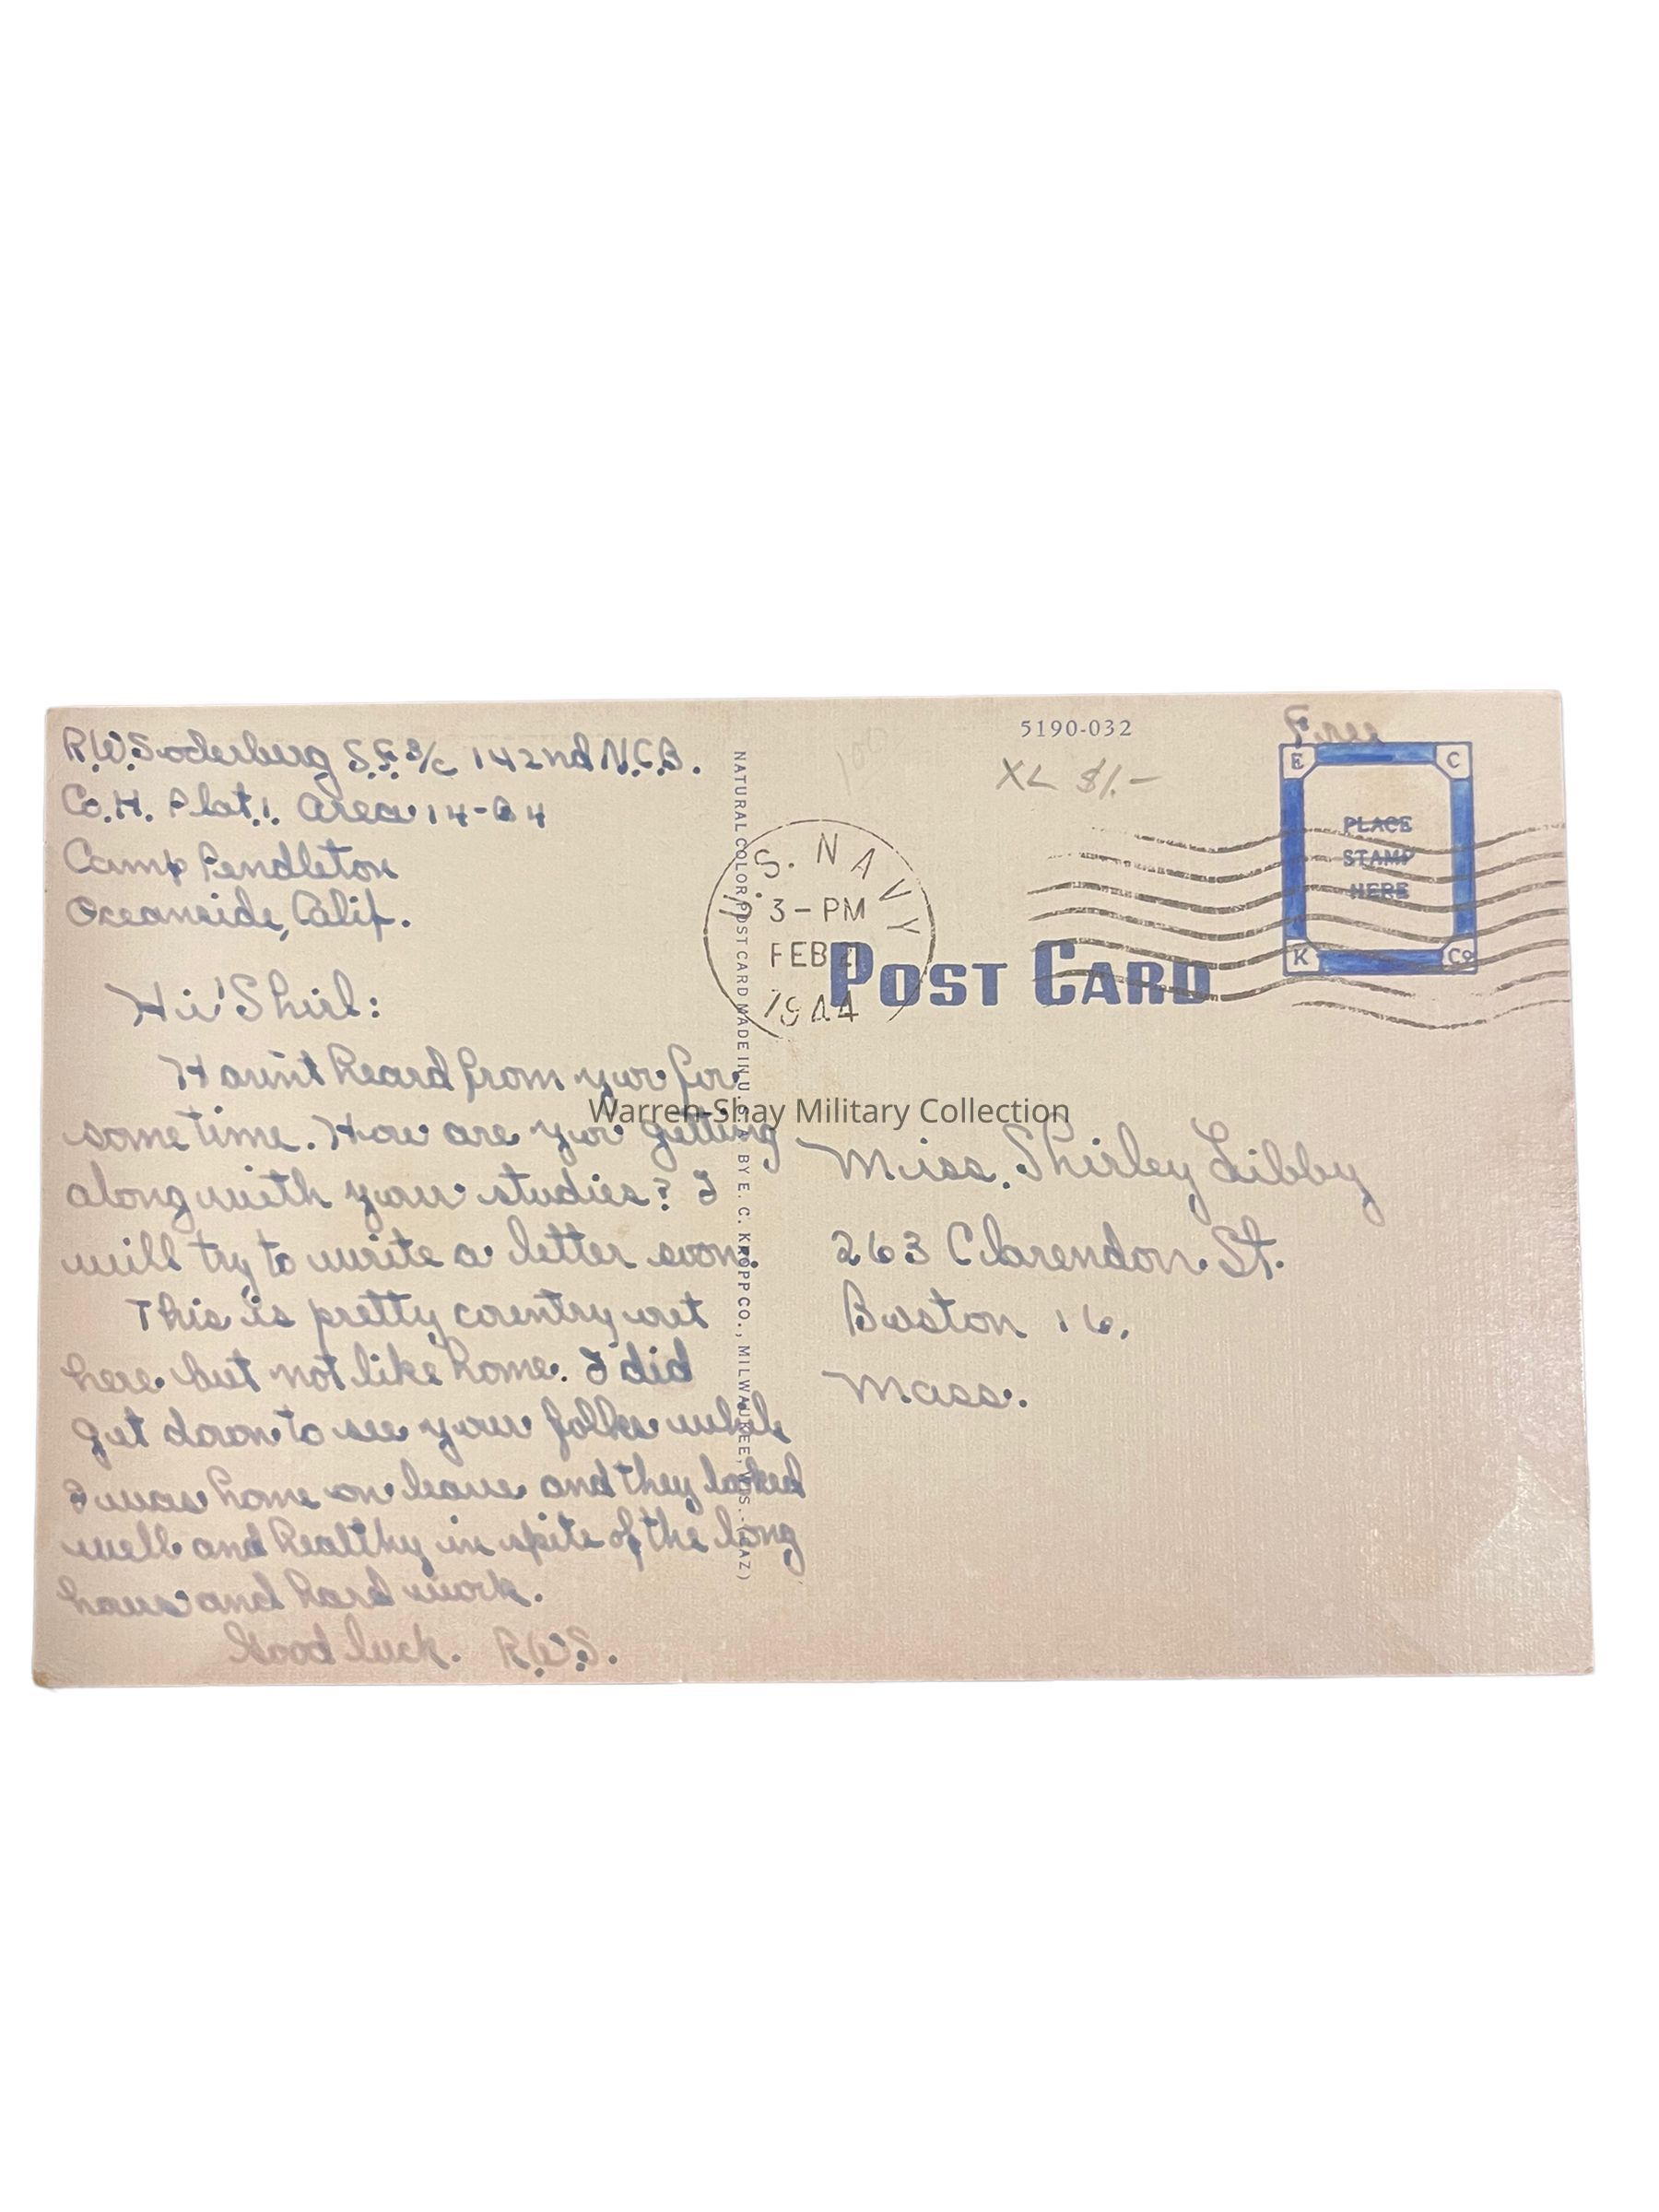 R.W. Soderburg S.F. 3/c 142nd N.C.B.
Co. H. Plat. 1. Area 14-B4
Camp Pendleton
Oceanside, Calif.
Hi' Shirl:
Havn't heard from you for
some time. How are you getting
along with your studies? I
will try to write a letter soon.
This is pretty country out
here but not like home. I did
get down to see your folks while
I was home on leave and they looked
well and healthy in spite of the long
hours and hard work.
Good luck. R.W.S.
NATURAL COLOR POST CARD MADE IN U. S. A. BY E. C. KROPP CO., MILWAUKEE, WIS.
5190-032
XL $1.-
100
Free
E C
PLACE
STAMP
HERE
K Co
U. S. NAVY
3-PM
FEB 21
1944
POST CARD
Warren-Shay Military Collection
Miss. Shirley Libby
263 Clarendon St.
Boston 16.
Mass.